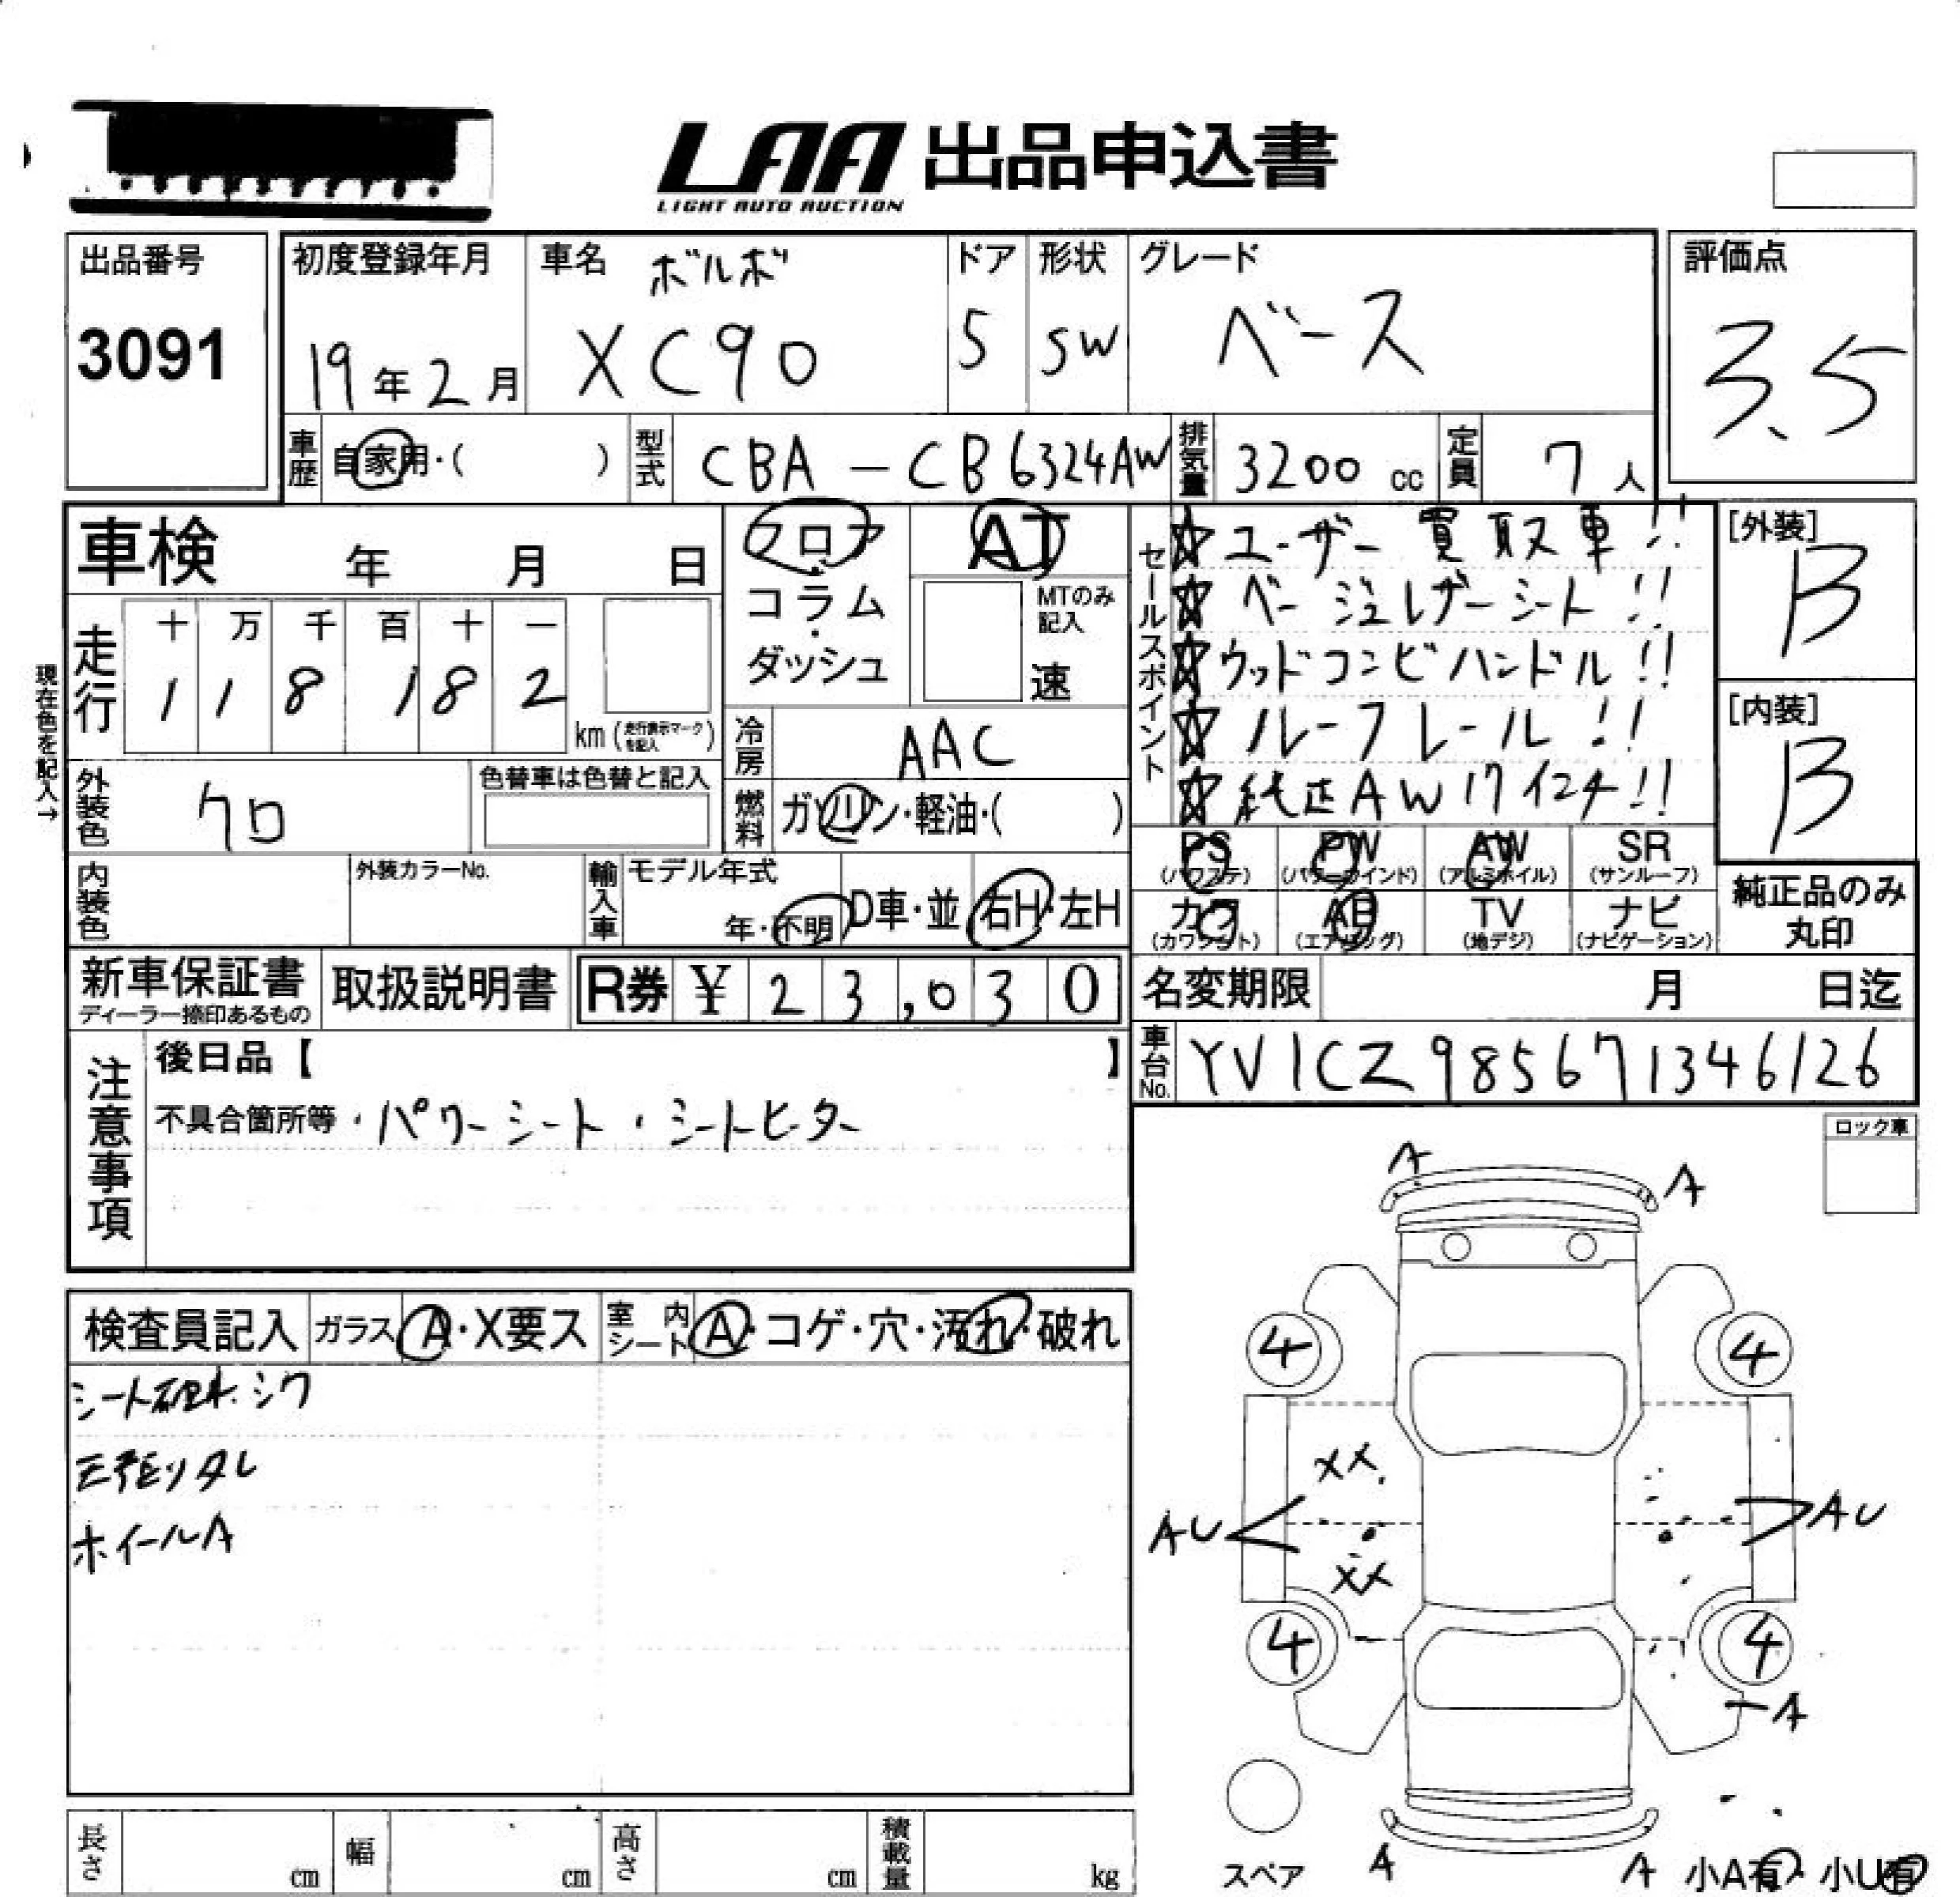 LAA 出品申込書
LIGHT AUTO AUCTION
出品番号
3091
初度登録年月
19年2月
車名 ボルボ
XC90
ドア
5
形状
SW
グレード
ベース
評価点
3.5
車歴 自家用・( )
型式 CBA-CB6324AW
排気量 3200cc
定員 7人
車検 年 月 日
フロア・コラム・ダッシュ
AT
MTのみ記入
速
セールスポイント
☆ユーザー買取車!!
☆ベージュレザーシート!!
☆ウッドコンビハンドル!!
☆ルーフレール!!
☆純正AW17インチ!!
[外装]
B
[内装]
B
現在色を記入→
走行
十 万 千 百 十 一
1 1 8 1 8 2
km(走行表示マークを記入)
冷房 AAC
外装色 クロ
色替車は色替と記入
燃料 ガソリン・軽油・( )
PS(パワステ) PW(パワーウインド) AW(アルミホイル) SR(サンルーフ)
カワ(カワシート) AB(エアバッグ) TV(地デジ) ナビ(ナビゲーション)
純正品のみ丸印
内装色
外装カラーNo.
輸入車
モデル年式
年・不明
D車・並
右H・左H
新車保証書
ディーラー捺印あるもの
取扱説明書
R券 ¥23,030
名変期限 月 日迄
車台No. YV1CZ985671346126
注意事項
後日品【 】
不具合箇所等・パワーシート・シートヒーター
ロック車
検査員記入
ガラス A・X要ス
室内シート A・コゲ・穴・汚れ・破れ
シート破れ.シワ
ホイールA
A
A
4
4
XX
AU
AU
XX
4
4
A
スペア
A
A
小A有・小U有
長さ cm
幅 cm
高さ cm
積載量 kg